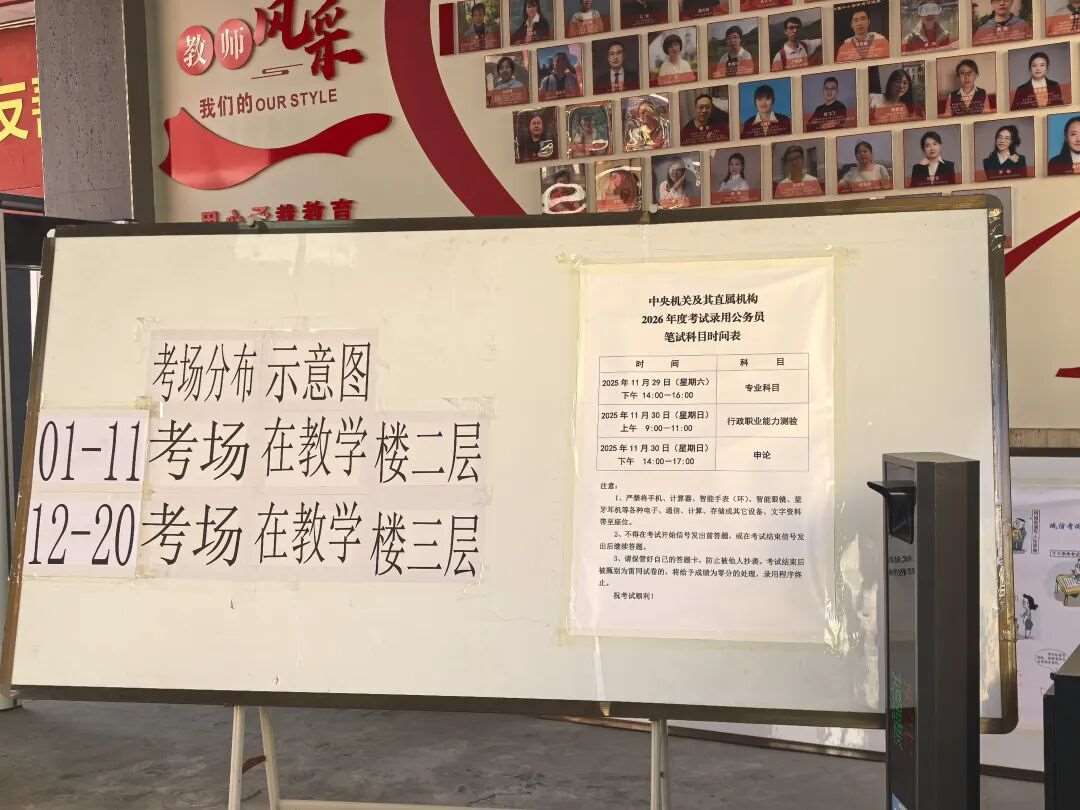 教师风采
我们的OUR STYLE
考场分布示意图
01-11考场在教学楼二层
12-20考场在教学楼三层
中央机关及其直属机构
2026年度考试录用公务员
笔试科目时间表
时 间 科 目
2025年11月29日(星期六)
下午 14:00—16:00 专业科目
2025年11月30日(星期日)
上午 9:00—11:00 行政职业能力测验
2025年11月30日(星期日)
下午 14:00—17:00 申论
注意:
1、严禁将手机、计算器、智能手表(环)、智能眼镜、蓝
牙耳机等各种电子、通信、计算、存储或其它设备、文字资料
带至座位。
2、不得在考试开始信号发出前答题,或在考试结束信号发
出后继续答题。
3、请保管好自己的答题卡,防止被他人抄袭。考试结束后
被甄别为雷同试卷的,将给予成绩为零分的处理,录用程序终
止。
祝考试顺利!